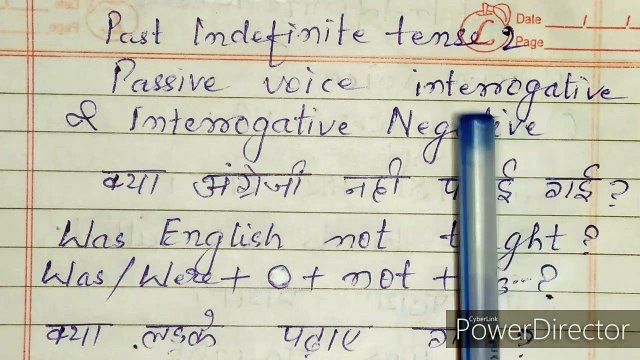 Past Indefinite tense 2
Date
Page
Passive voice interrogative
& Interrogative Negative
क्या अंग्रेजी नही गई ?
Was English not ?
Was/Were + O + not + ?
क्या लड़के पढ़ाए
CyberLink
PowerDirector